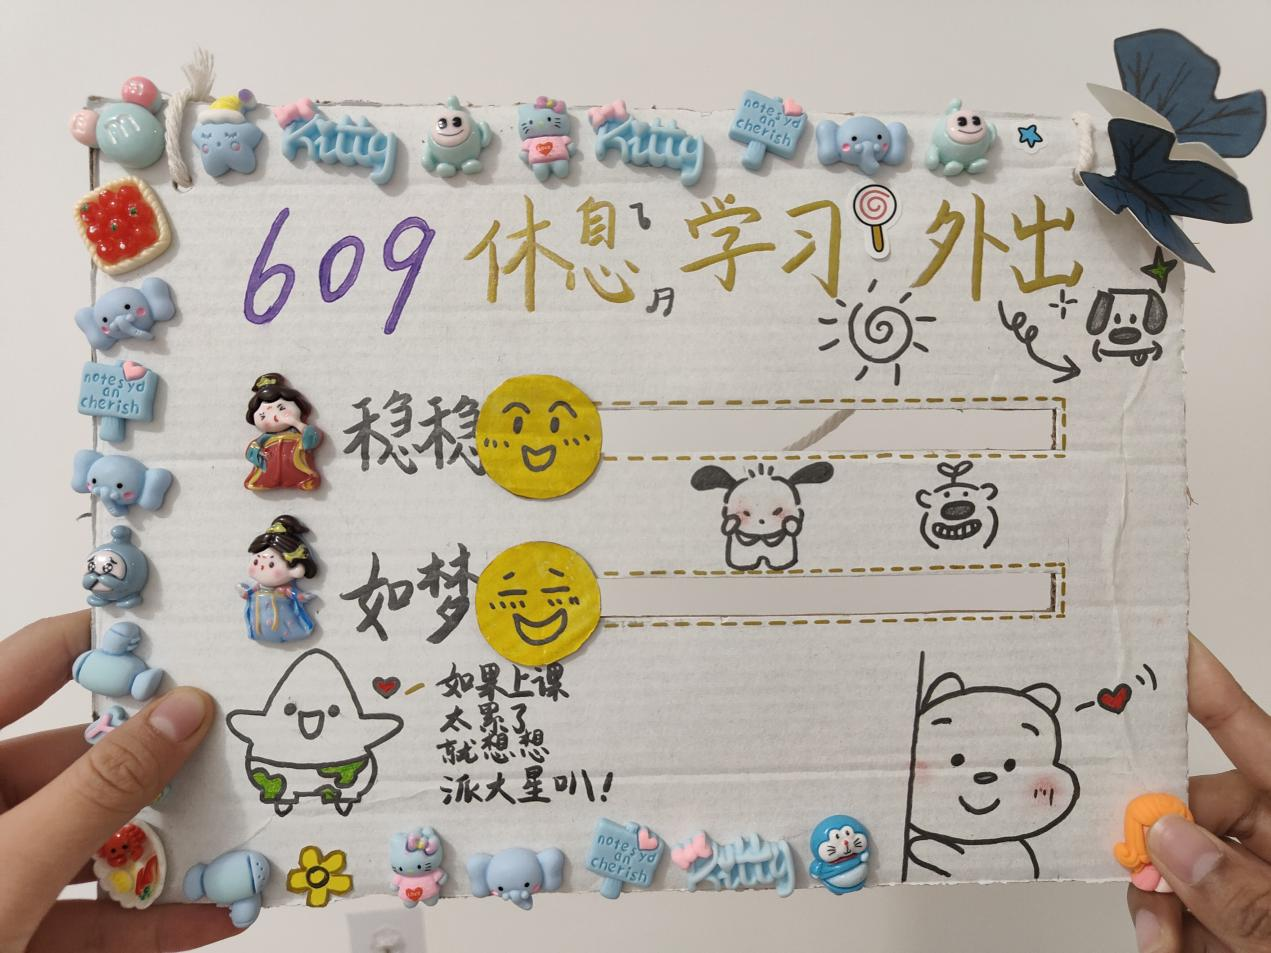 Kitty
Kitty
notesyd
an
cherish
609 休息 学习 外出
notesyd
an
cherish
稳稳
如梦
如果上课
太累了
就想想
派大星叭!
Love
notesyd
an
cherish
Kitty